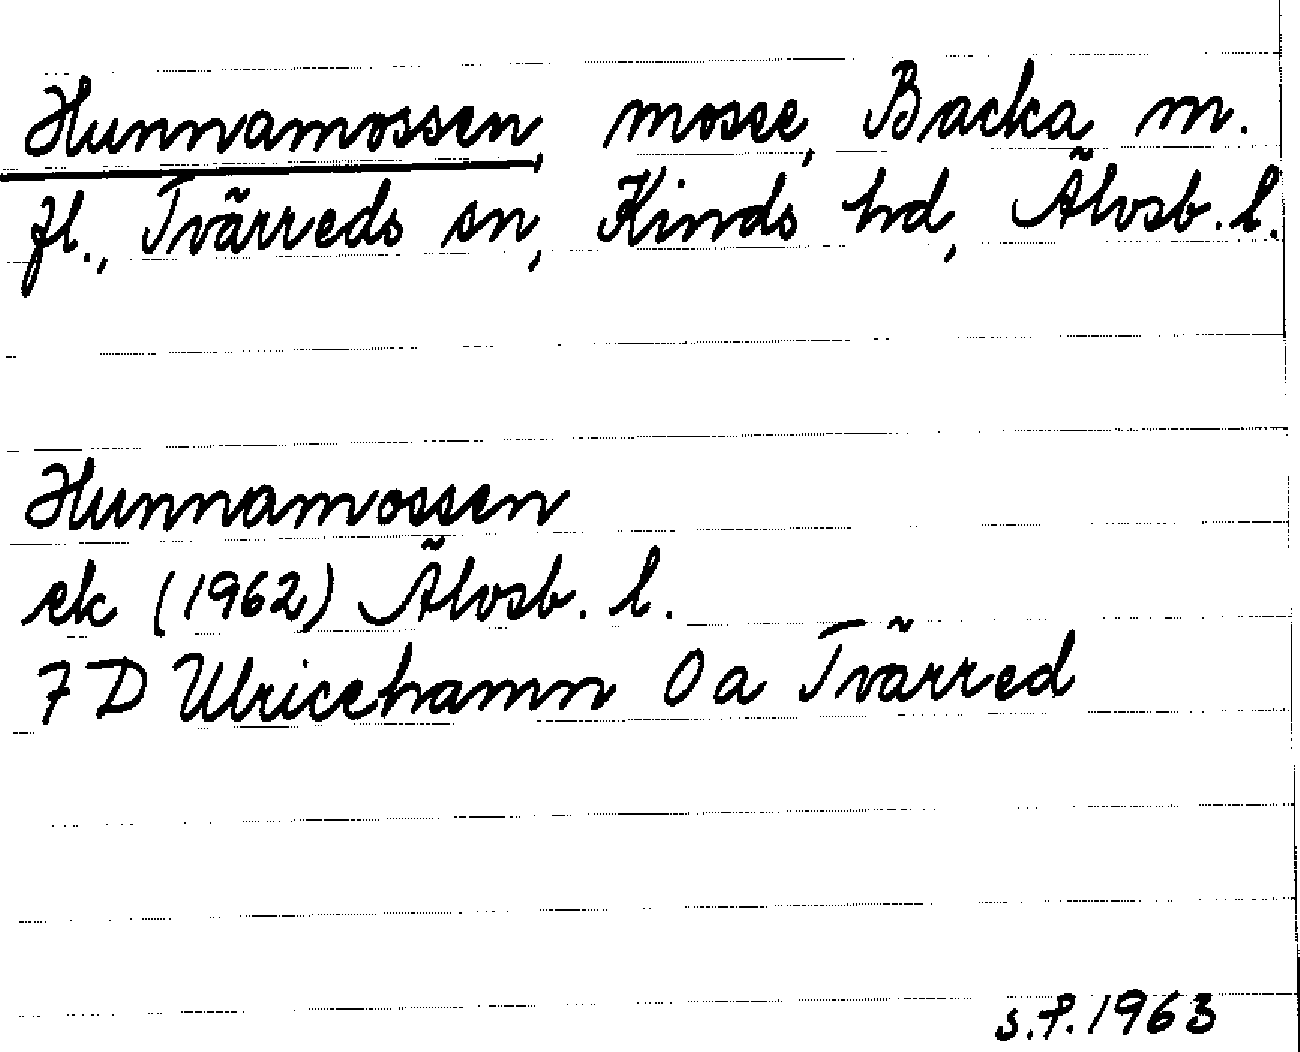 Hunnamossen, mosse, Backa m.
fl., Tvärreds sn, Kinds hd, Älvsb. l.
Hunnamossen
ek (1962) Älvsb. l.
7 D Ulricehamn 0 a Tvärred
S.P. 1963